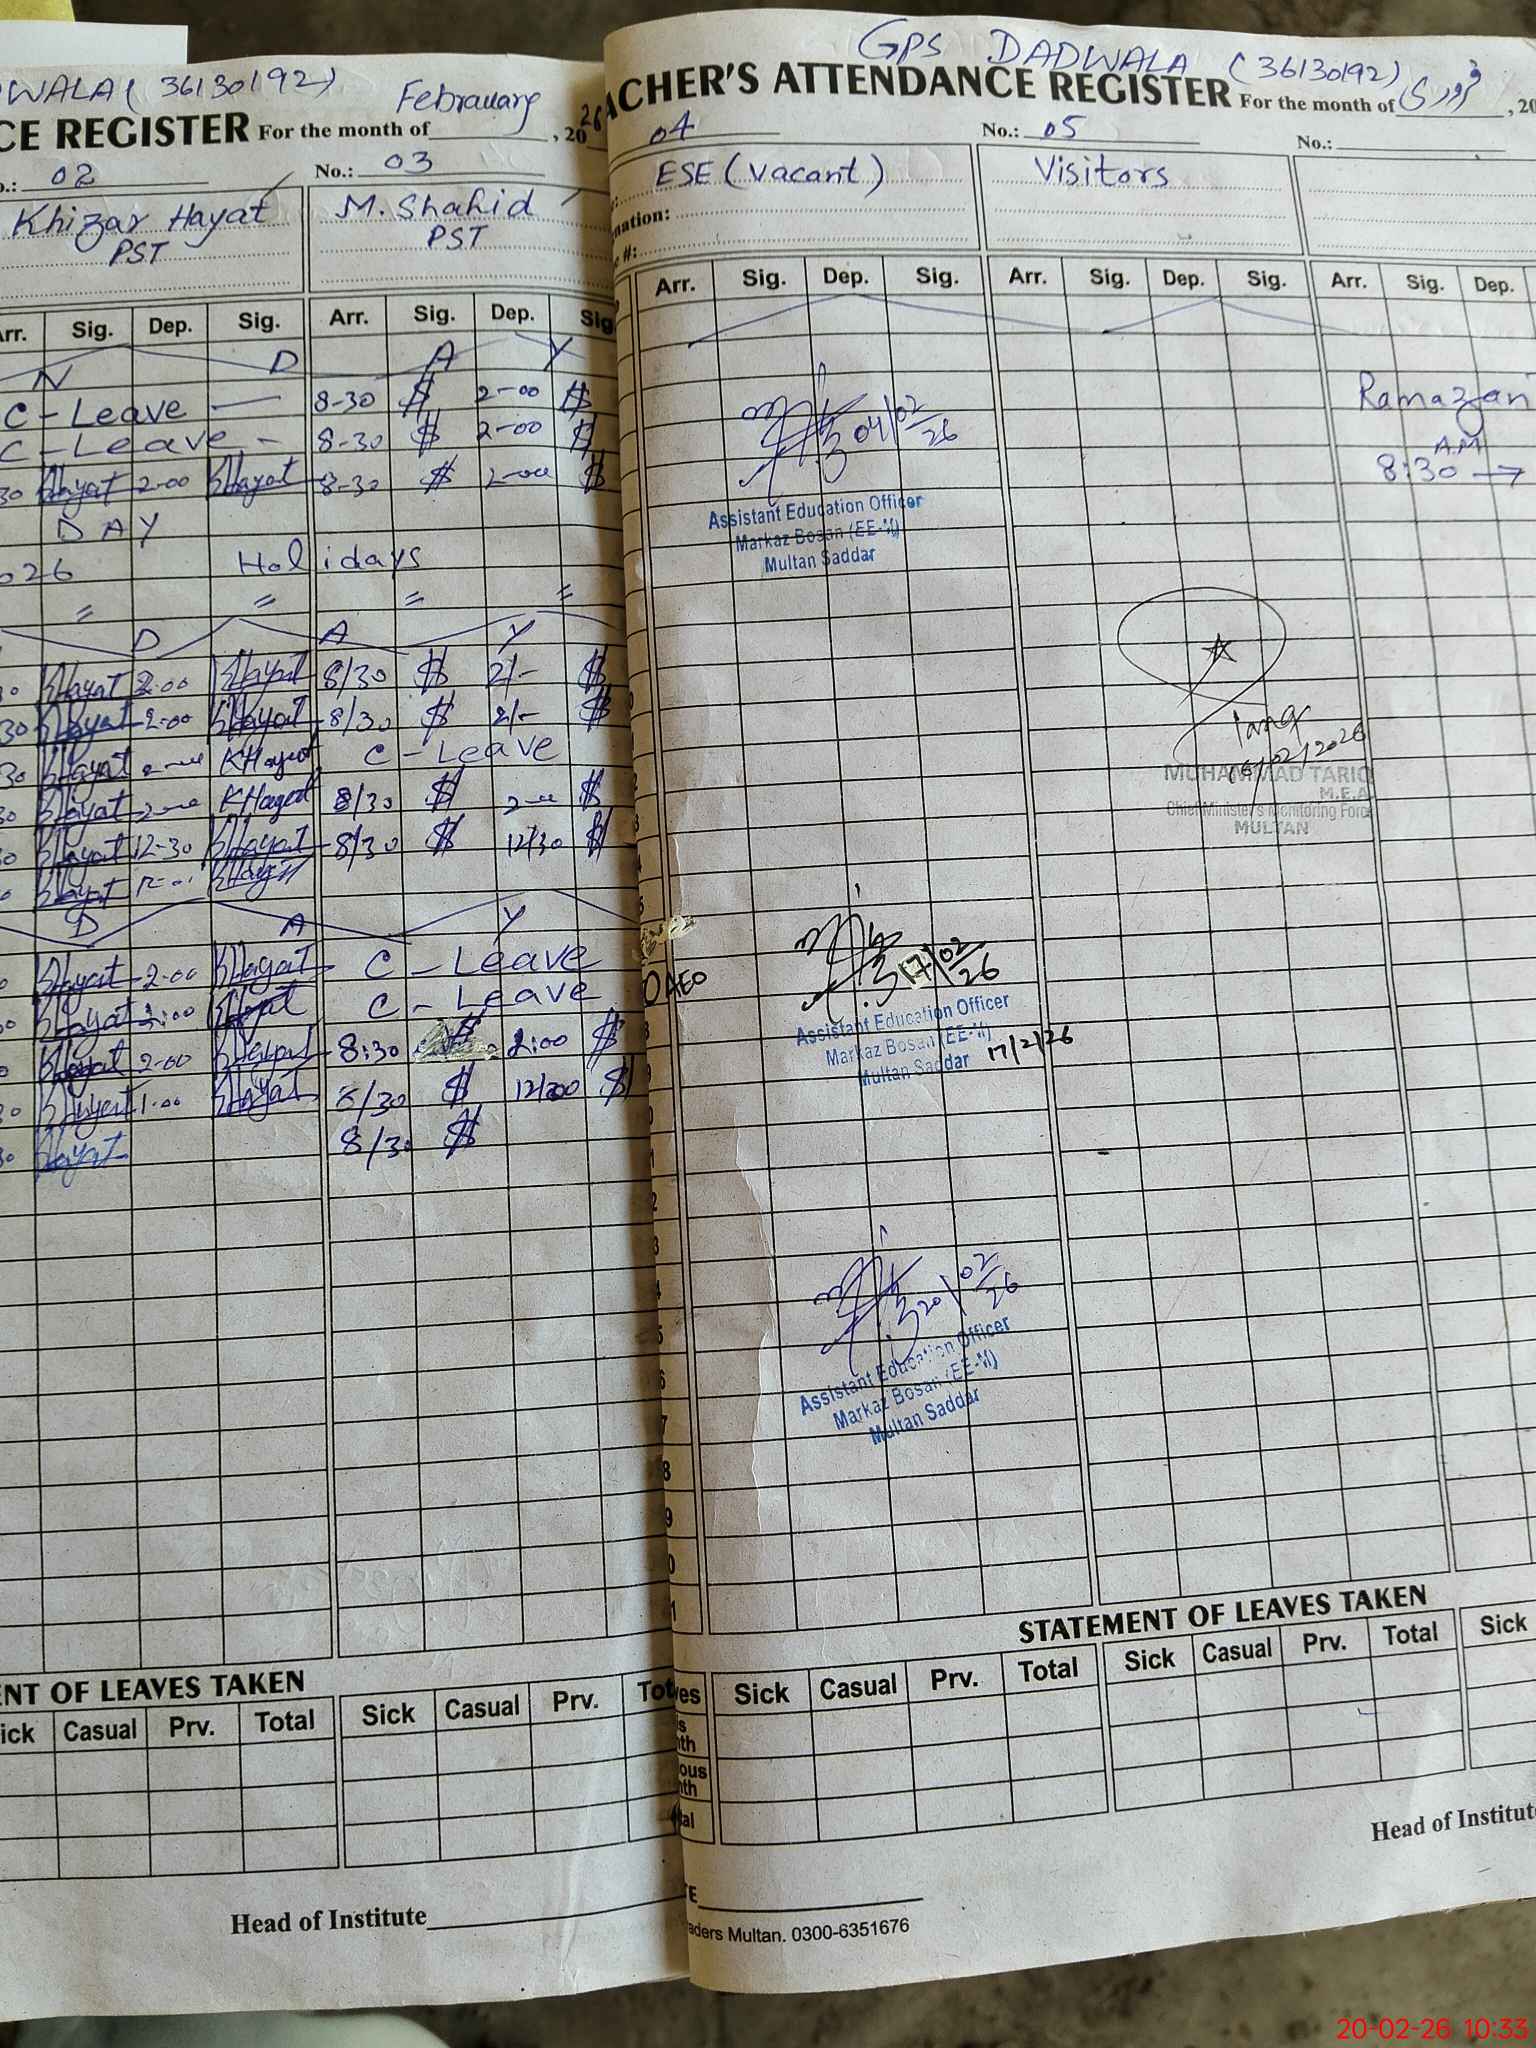 WALA (36130192)
CE REGISTER For the month of Febrauary, 2026
02
No.: 03
Khizar Hayat
PST
M. Shahid
PST
Arr. Sig. Dep. Sig. Arr. Sig. Dep. Sig.
N D A Y
C - Leave 8-30 2-00
C - Leave - 8-30 2-00
30 Hayat 2-00 Hayat 8-30 2-00
D A Y
026 Holidays
= = = =
D A Y
Hayat 2-00 Hayat 8/30 2/-
30 Hayat 2-00 Hayat 8/30 2/-
30 Hayat KHayat C - Leave
30 Hayat KHayat 8/30
Hayat 12-30 Hayat 8/30 12/30
Hayat Hayat
D A Y
Hayat 2-00 Hayat C - Leave
Hayat Hayat C - Leave
Hayat 2-00 Hayat 8:30 2:00
Hayat 1-00 Hayat 8/30 12/
Hayat 8/30
ENT OF LEAVES TAKEN
Sick Casual Prv. Total Sick Casual Prv. Tot
Head of Institute
GPS DADWALA (36130192)
ACHER'S ATTENDANCE REGISTER For the month of فروری, 20
04 No.: 05 No.:
ESE (Vacant)
Visitors
nation:
#:
Arr. Sig. Dep. Sig. Arr. Sig. Dep. Sig. Arr. Sig. Dep.
Ramazan
A.M
8:30 →
04/02/26
Assistant Education Officer
Markaz Bosan (EE-M)
Multan Saddar
Tariq
/02/2026
MUHAMMAD TARIQ
M.E.A
Chief Minister's Monitoring Force
MULTAN
AEO
17/02/26
Assistant Education Officer
Markaz Bosan (EE-M)
Multan Saddar 17/2/26
20/02/26
Assistant Education Officer
Markaz Bosan (EE-M)
Multan Saddar
STATEMENT OF LEAVES TAKEN
ves Sick Casual Prv. Total Sick Casual Prv. Total Sick
is
nth
ious
nth
tal
Head of Institute
TE
aders Multan. 0300-6351676
20-02-26 10:33